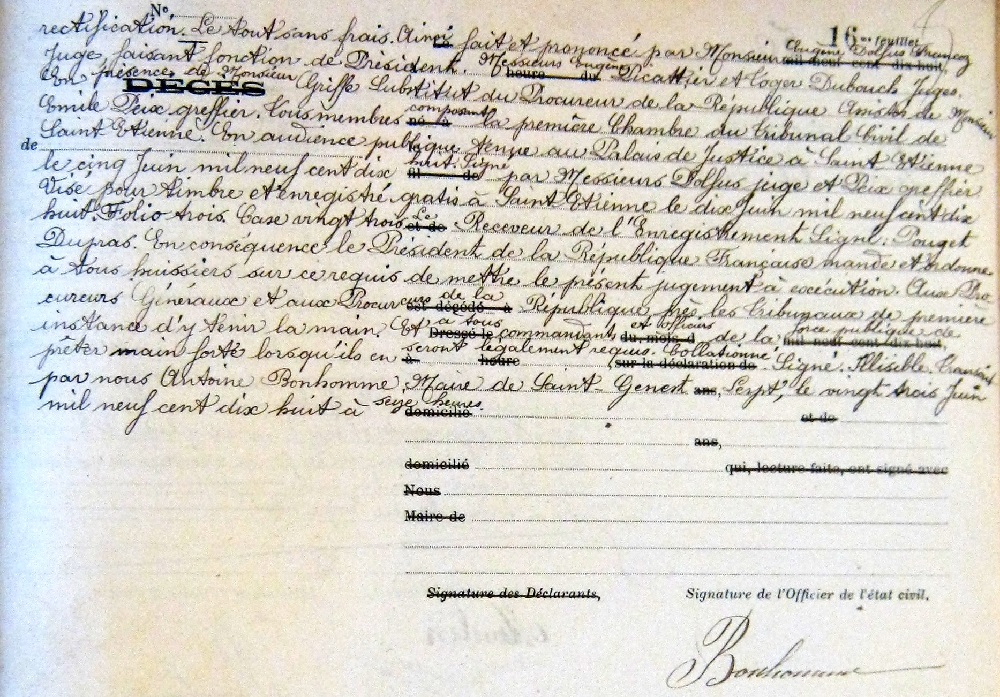 No
16me feuillet
rectification. Le tout sans frais. Ainsi fait et prononcé par Monsieur Eugène Dolfus
Juge faisant fonction de Président. Messieurs Eugène Picattier et Roger Dubouch Juges.
En présence de Monsieur Griffe Substitut du Procureur de la République assisté de Monsieur
DÉCÈS
Emile Peix greffier. Tous membres composant la première Chambre du tribunal Civil de
Saint Etienne. En audience publique tenue au Palais de Justice à Saint Etienne
de
le cinq Juin mil neuf cent dix huit. Signé par Messieurs Dolfus juge et Peix greffier
Visé pour timbre et enregistré gratis à Saint Etienne le dix Juin mil neuf cent dix
huit. Folio trois. Case vingt trois Le Receveur de l'Enregistrement Signé: Pouget
Dupras. En conséquence le Président de la République Française mande et ordonne
à tous huissiers sur ce requis de mettre le présent jugement à exécution. Aux Pro
cureurs Généraux et aux Procureurs de la République près les Tribunaux de première
instance d'y tenir la main. Et à tous commandants et officiers de la force publique de
prêter main forte lorsqu'ils en seront légalement requis. Collationné Signé. Illisible. Transcrit
par nous Antoine Bonhomme, Maire de Saint Genest Lerpt, le vingt trois Juin
mil neuf cent dix huit à seize heures.
domicilié et de
ans,
domicilié qui, lecture faite, ont signé avec
Nous
Maire de
Signature des Déclarants, Signature de l'Officier de l'état civil,
Bonhomme